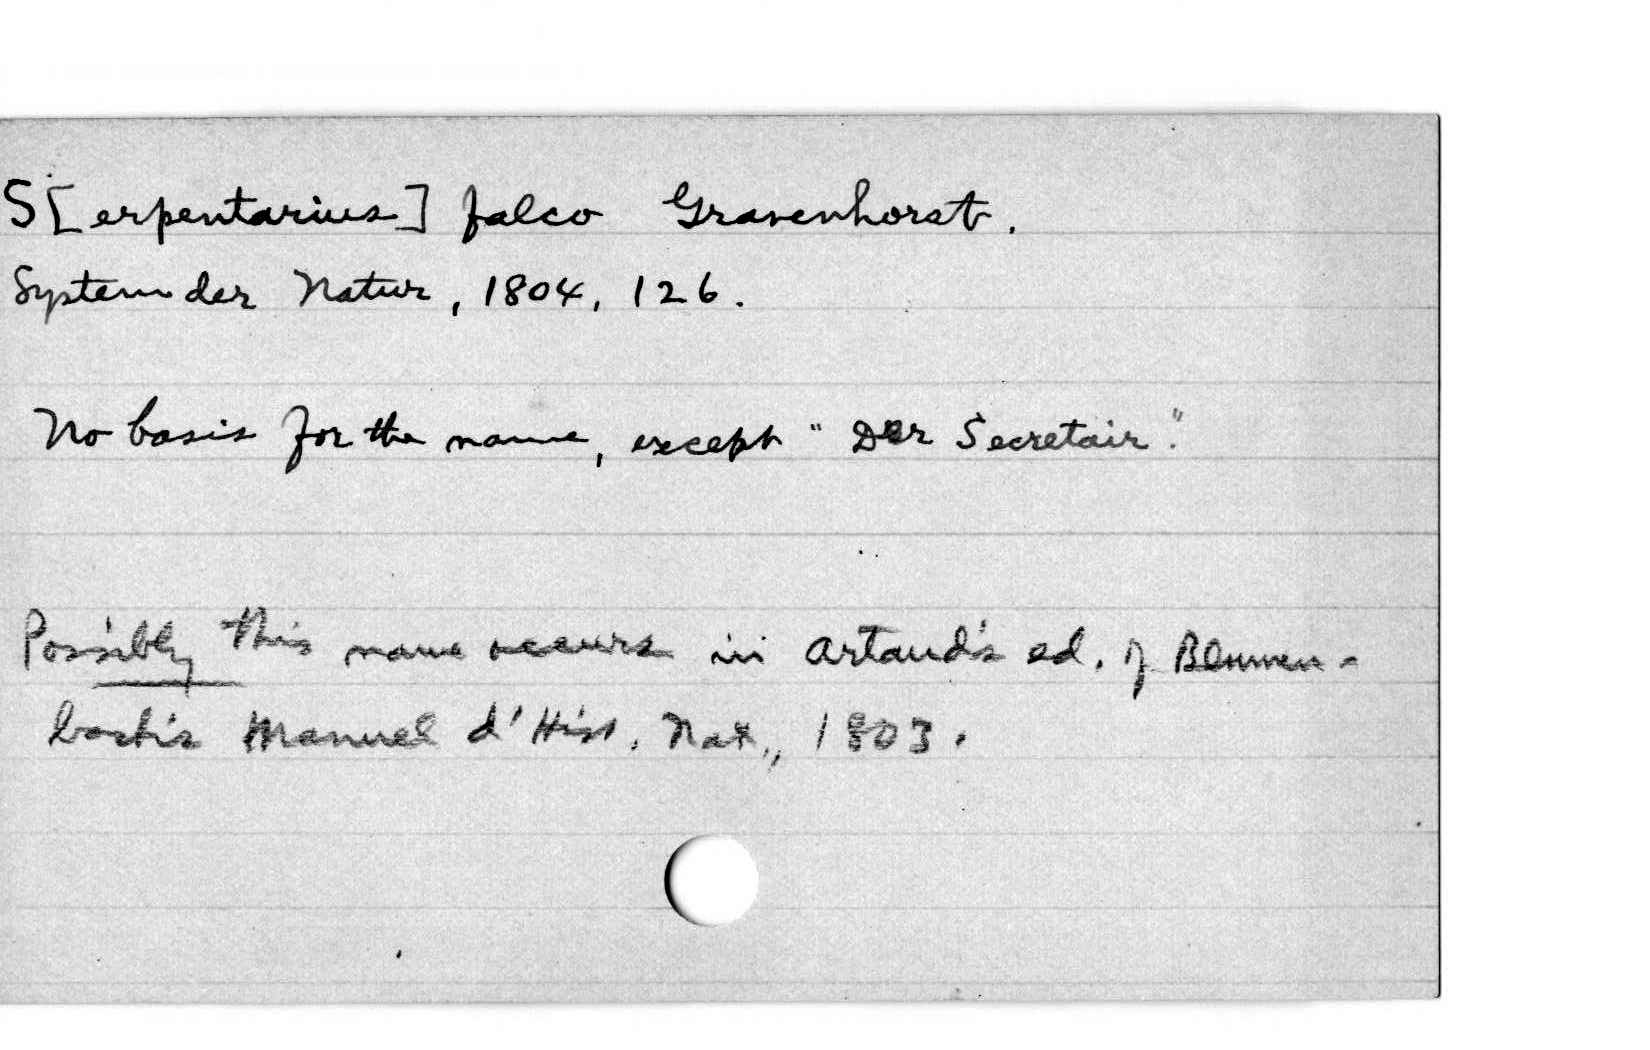 S[erpentarius] falco Gravenhorst.
System der Natur, 1804, 126.
No basis for the name, except "Der Secretair".
Possibly this name occurs in Artaud's ed. of Blumen-
bach's Manuel d'Hist. Nat., 1803.